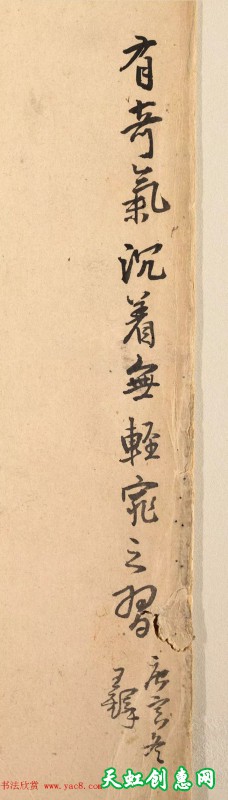 有奇氣沉着無輕窕之習
庚寅冬
王鐸
书法欣赏 www.yac8.com
天虹创惠网